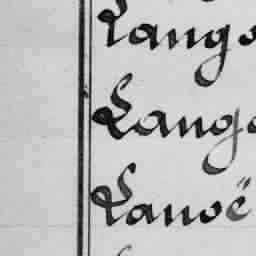 Lango
Lange
Lanoë